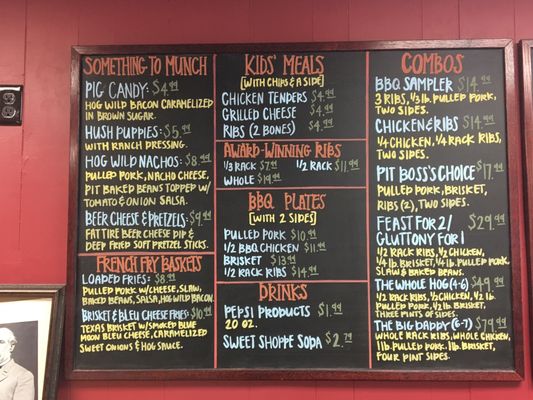 SOMETHING TO MUNCH
PIG CANDY: $4.99
HOG WILD BACON CARAMELIZED
IN BROWN SUGAR.
HUSH PUPPIES: $5.99
WITH RANCH DRESSING.
HOG WILD NACHOS: $8.99
PULLED PORK, NACHO CHEESE,
PIT BAKED BEANS TOPPED W/
TOMATO & ONION SALSA.
BEER CHEESE & PRETZELS: $9.99
FAT TIRE BEER CHEESE DIP &
DEEP FRIED SOFT PRETZEL STICKS.
FRENCH FRY BASKETS
LOADED FRIES: $8.99
PULLED PORK W/ CHEESE, SLAW,
BAKED BEANS, SALSA, HOG WILD BACON.
BRISKET & BLEU CHEESE FRIES: $10.99
TEXAS BRISKET W/ SMOKED BLUE
MOON BLEU CHEESE, CARAMELIZED
SWEET ONIONS & HOG SAUCE.
KIDS' MEALS
[WITH CHIPS & A SIDE]
CHICKEN TENDERS $4.99
GRILLED CHEESE $4.99
RIBS (2 BONES) $4.99
AWARD-WINNING RIBS
1/3 RACK $7.99 1/2 RACK $11.99
WHOLE $19.99
BBQ PLATES
[WITH 2 SIDES]
PULLED PORK $10.99
1/2 BBQ CHICKEN $11.99
BRISKET $13.99
1/2 RACK RIBS $14.99
DRINKS
PEPSI PRODUCTS $1.99
20 OZ.
SWEET SHOPPE SODA $2.79
COMBOS
BBQ SAMPLER $14.99
3 RIBS, 1/3 LB. PULLED PORK,
TWO SIDES.
CHICKEN & RIBS $14.99
1/4 CHICKEN, 1/4 RACK RIBS,
TWO SIDES.
PIT BOSS'S CHOICE $17.99
PULLED PORK, BRISKET,
RIBS (2), TWO SIDES.
FEAST FOR 2/ $29.99
GLUTTONY FOR 1
1/2 RACK RIBS, 1/2 CHICKEN,
1/4 LB. BRISKET, 1/4 LB. PULLED PORK,
SLAW & BAKED BEANS.
THE WHOLE HOG (4-6) $49.99
1/2 RACK RIBS, 1/2 CHICKEN, 1/2 LB.
PULLED PORK, 1/2 LB. BRISKET,
THREE PINTS OF SIDES.
THE BIG DADDY (6-7) $79.99
WHOLE RACK RIBS, WHOLE CHICKEN,
1 LB. PULLED PORK, 1 LB. BRISKET,
FOUR PINT SIDES.